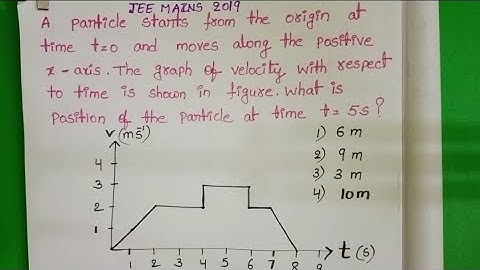 JEE MAINS 2019
A particle starts from the origin at
time t=0 and moves along the positive
x-axis. The graph of velocity with respect
to time is shown in figure. What is
position of the particle at time t= 5s?
V (ms⁻¹)
1) 6 m
2) 9 m
3) 3 m
4) 10m
4
3
2
1
1 2 3 4 5 6 7 8 9
t (s)